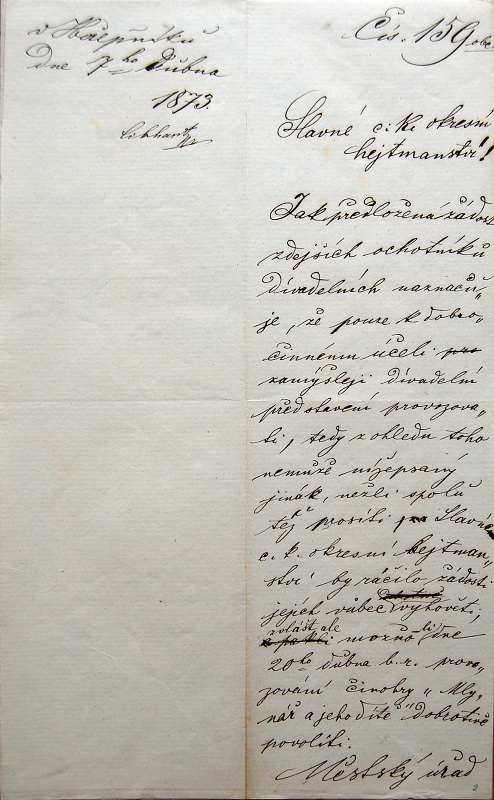 v Hořepníku
dne 7ho dubna
1873.
Čís. 159 obe.
Slavné c. k. okresní
hejtmanství!
Jak předložená žádost
zdejších ochotníků
divadelních naznaču„
je, že pouze k dobro„
činnému účeli pro
zamýšlejí divadelní
představení provozova„
ti, tedy z ohledu toho
nemůže nížepsaný
jinák, nežli spolu
též prositi Slavné
c. k. okresní hejtman„
ství by ráčilo žádosti
jejich vůbec vyhověti,
zvlášt ale
možno li dne
20ho dubna b. r. provo„
zování činohry „Mly„
nář a jeho dítě" dobrotivě
povoliti.
Městský úřad
2